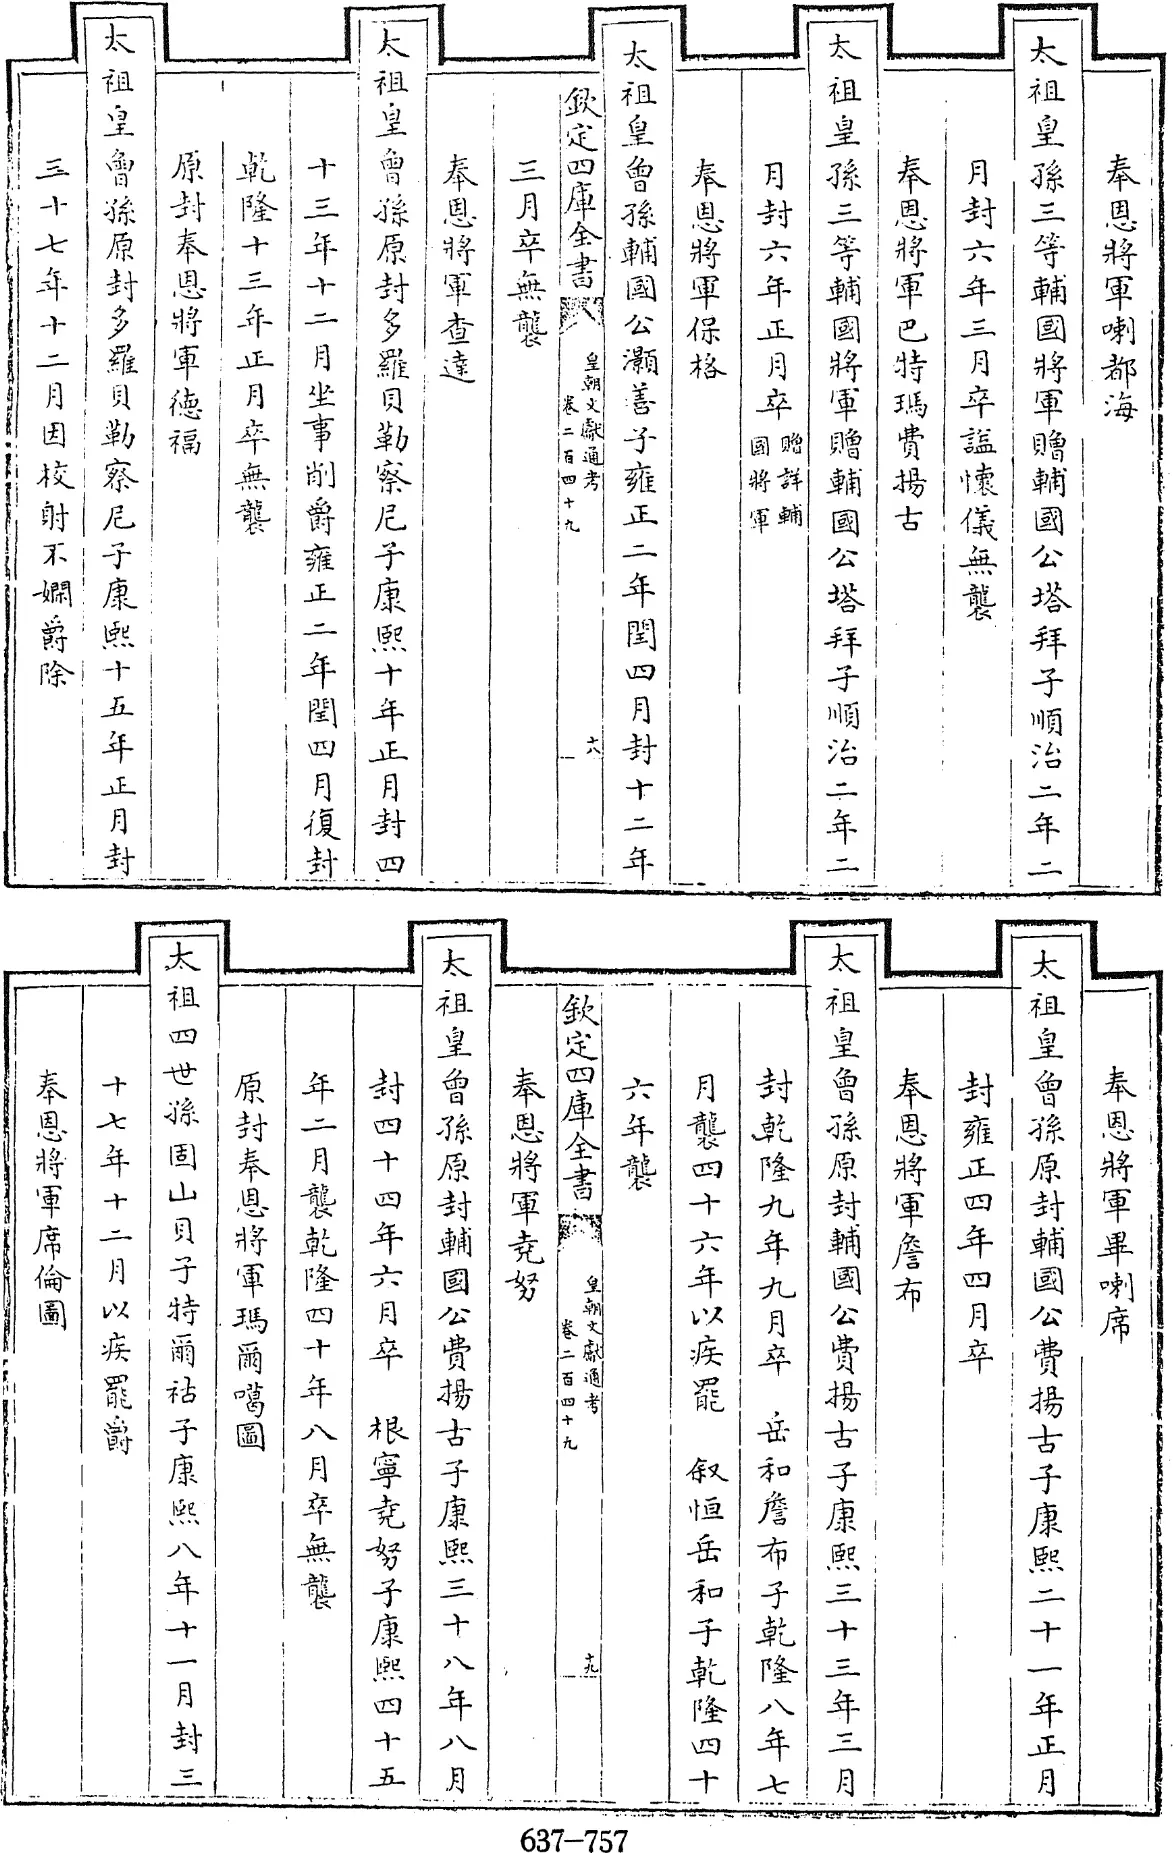 奉恩將軍喇都海
太祖皇孫三等輔國將軍贈輔國公塔拜子順治二年二
月封六年三月卒諡懷儀無襲
奉恩將軍巴特瑪費揚古
太祖皇孫三等輔國將軍贈輔國公塔拜子順治二年二
月封六年正月卒贈詳輔國將軍
奉恩將軍保格
太祖皇曾孫輔國公灝善子雍正二年閏四月封十二年
欽定四庫全書
皇朝文獻通考
卷二百四十九
十八
三月卒無襲
奉恩將軍查達
太祖皇曾孫原封多羅貝勒察尼子康熙十年正月封四
十三年十二月坐事削爵雍正二年閏四月復封
乾隆十三年正月卒無襲
原封奉恩將軍德福
太祖皇曾孫原封多羅貝勒察尼子康熙十五年正月封
三十七年十二月因校射不嫻爵除
奉恩將軍畢喇席
太祖皇曾孫原封輔國公費揚古子康熙二十一年正月
封雍正四年四月卒
奉恩將軍詹布
太祖皇曾孫原封輔國公費揚古子康熙三十三年三月
封乾隆九年九月卒 岳和詹布子乾隆八年七
月襲四十六年以疾罷 叙恒岳和子乾隆四十
六年襲
欽定四庫全書
皇朝文獻通考
卷二百四十九
十九
奉恩將軍堯努
太祖皇曾孫原封輔國公費揚古子康熙三十八年八月
封四十四年六月卒 根寧堯努子康熙四十五
年二月襲乾隆四十年八月卒無襲
原封奉恩將軍瑪爾噶圖
太祖四世孫固山貝子特爾祜子康熙八年十一月封三
十七年十二月以疾罷爵
奉恩將軍席倫圖
637-757